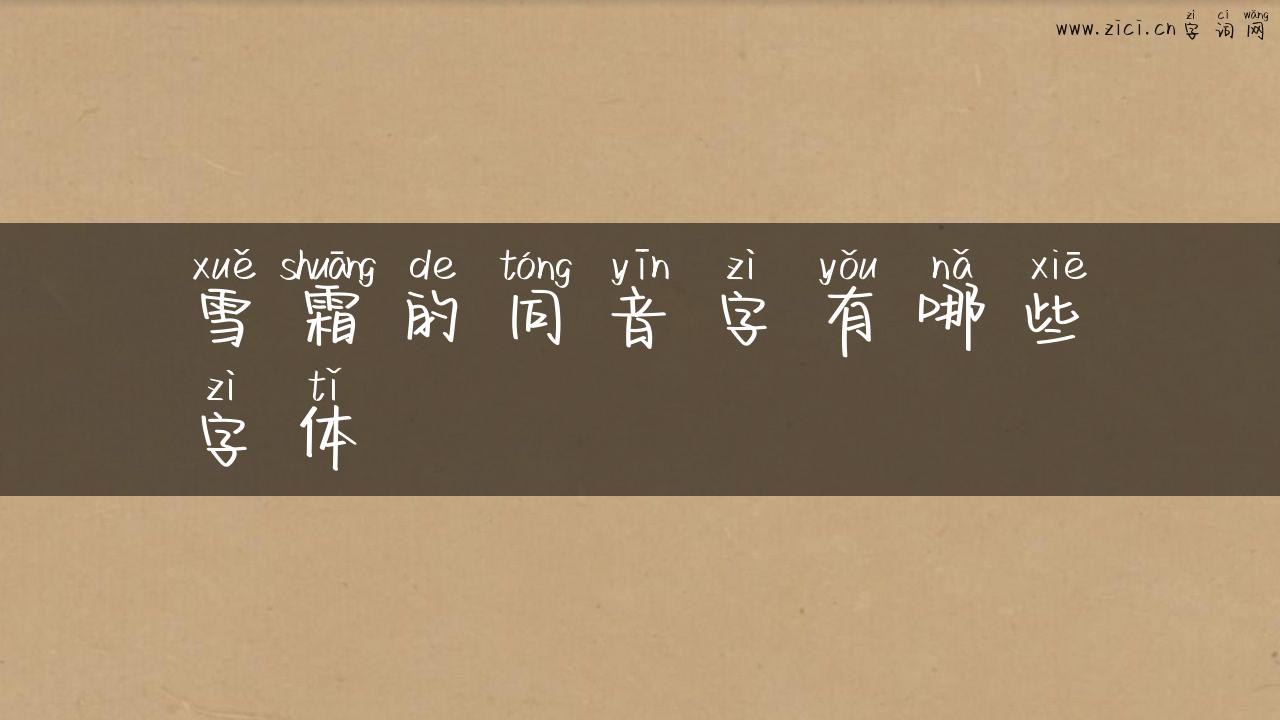 zì cí wǎng
www.zici.cn 字词网
xuě shuāng de tóng yīn zì yǒu nǎ xiē
雪霜的同音字有哪些
zì tǐ
字体